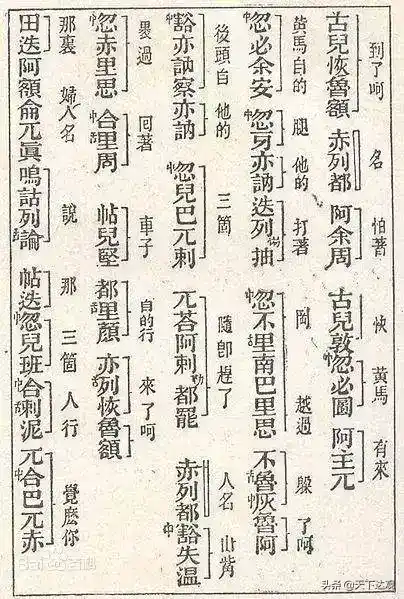 到了呵 名 怕著 快 黃馬 有來
古兒恢魯額 赤列都 阿余周 古兒敦 忽必圖 阿主兀
黃馬自的 腿 他的 打著 岡 越過 躲了呵
忽必余安 亦訥 迭列抽 忽不里南巴里思 不魯 阿
後頭自 他的 三箇 隨即趕了 人名 山觜
豁亦訥察亦訥 忽兒巴兀剌 兀荅阿剌都罷 赤列都 豁失溫
過 囘著 車子 自的行 來了呵
忽赤里思 合里周 帖兒堅 都里顏 亦列恢魯額
那裏 婦人名 說 那 三箇 人行 覺麽你
田迭 阿額侖兀眞 嗚詁列論 帖迭 忽兒班 合剌泥 兀合巴兀赤
Baidu百科
头条 @天下达观